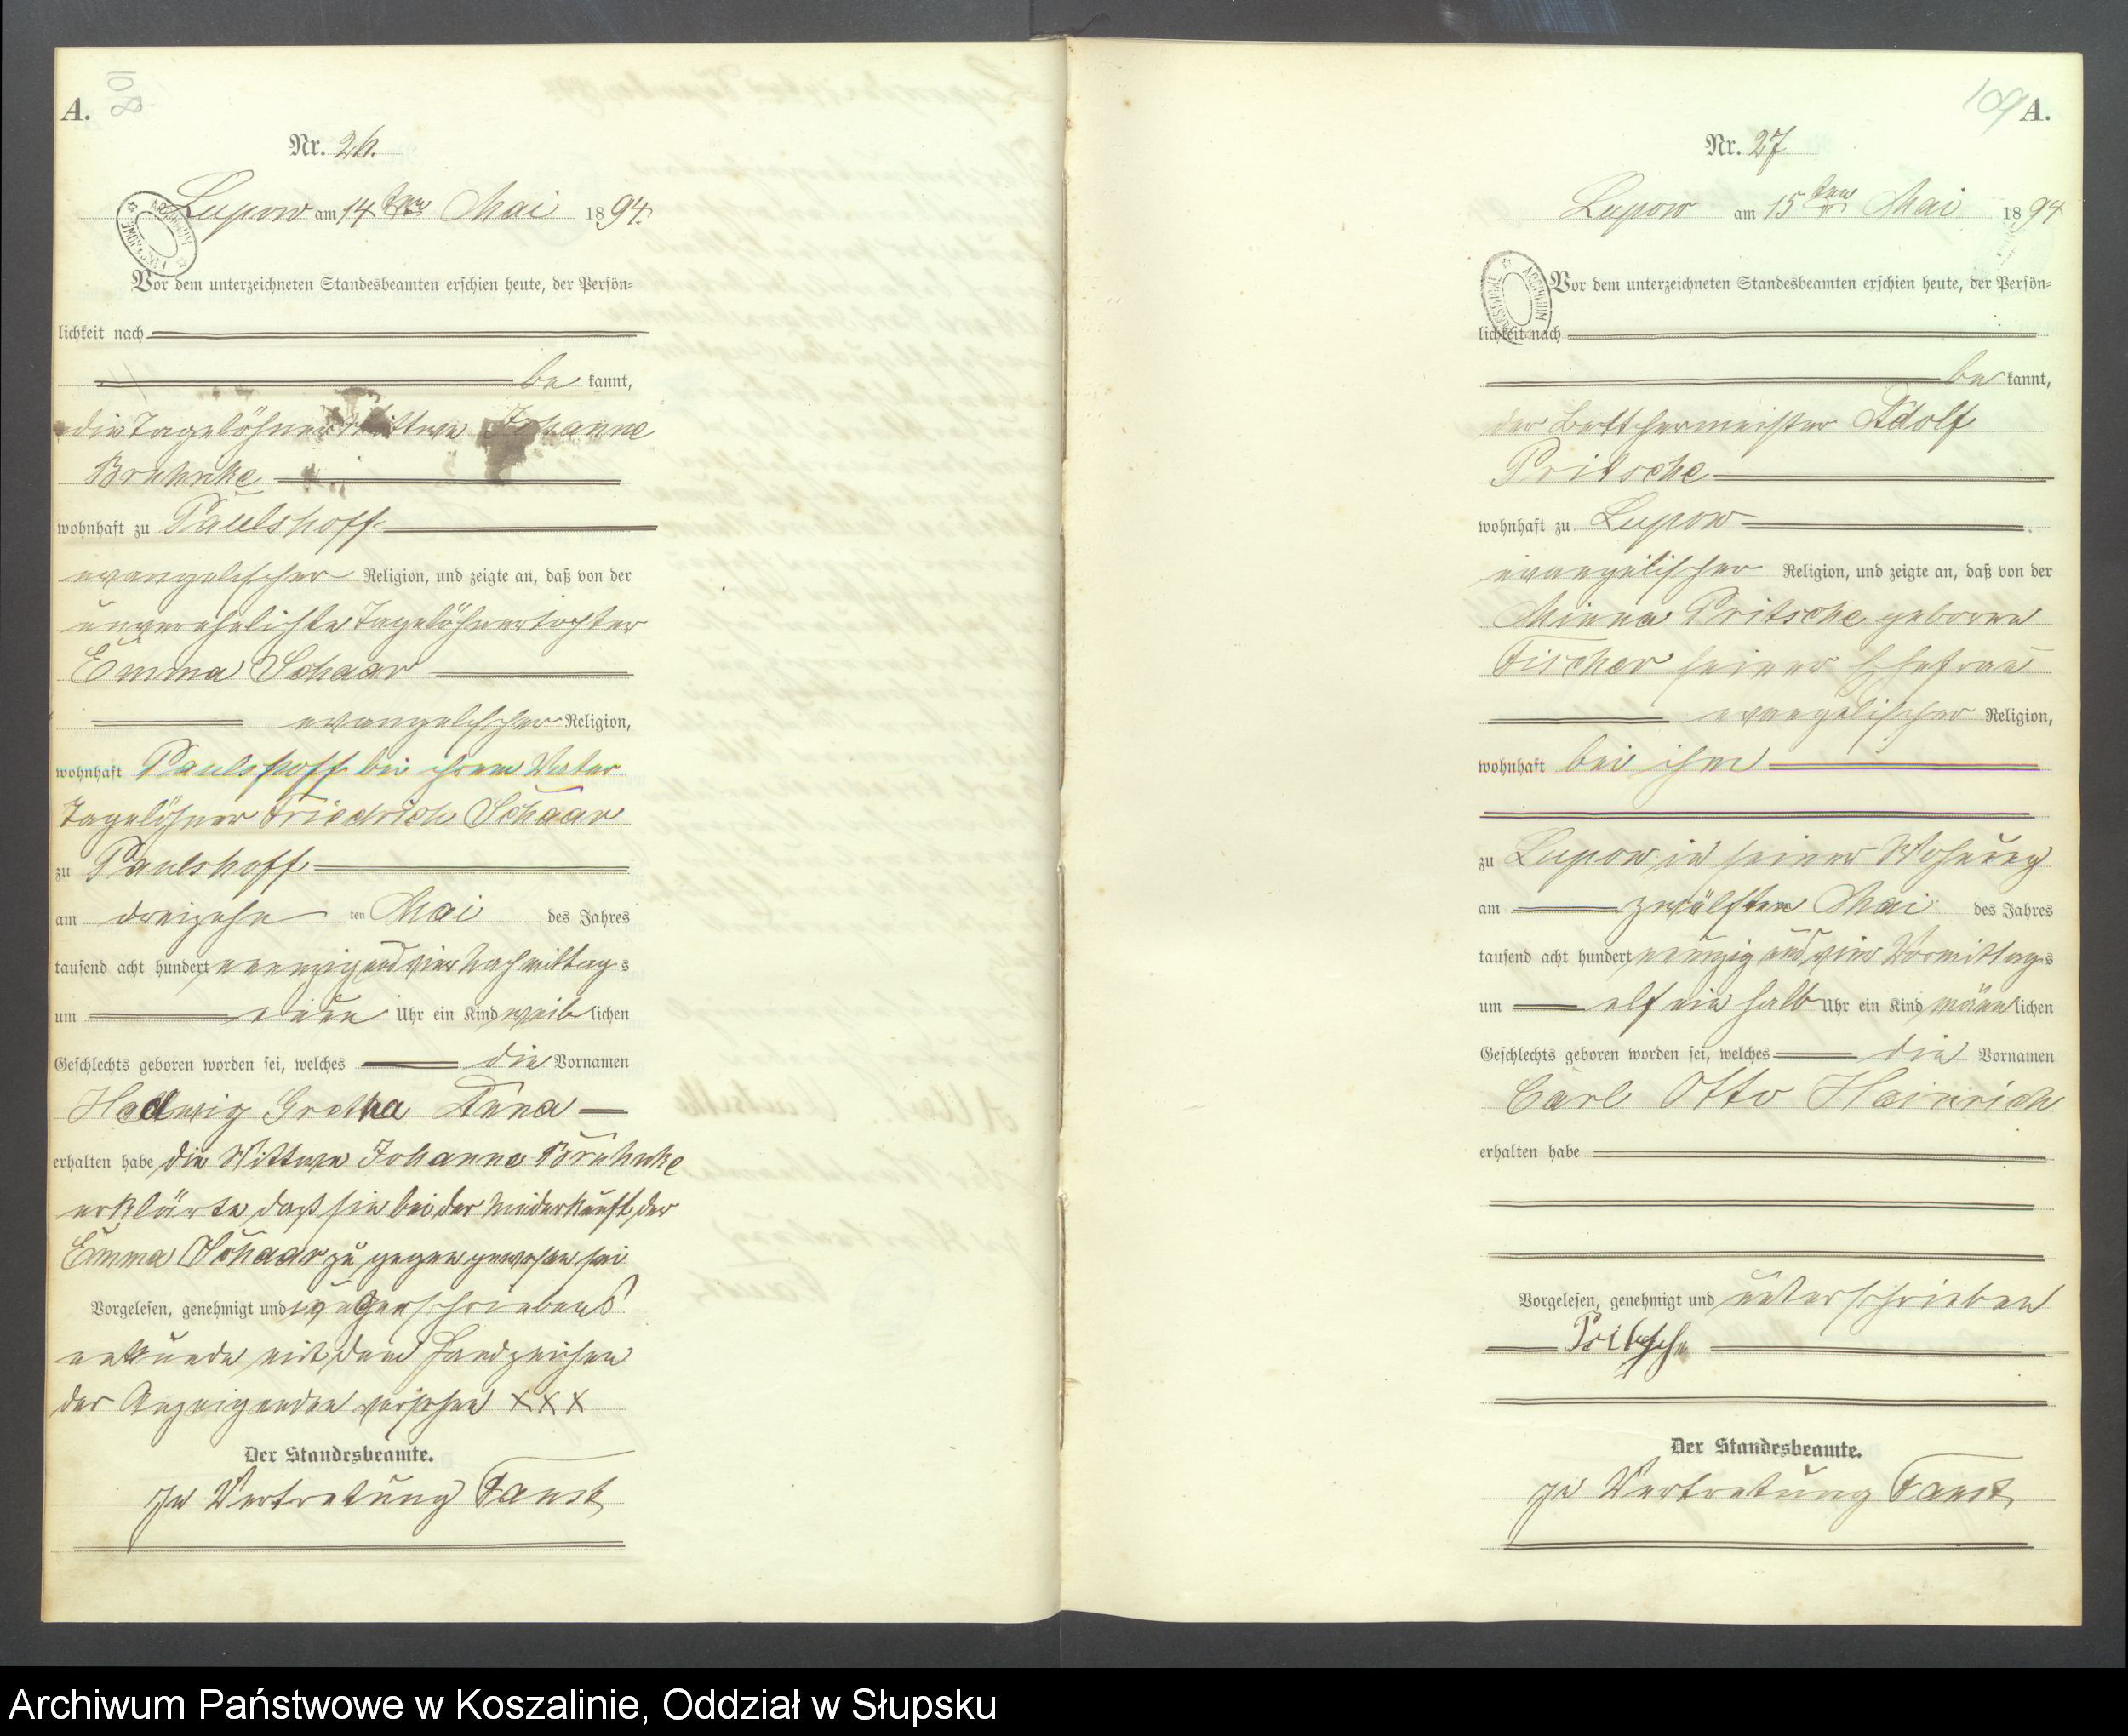 A.
108
Nr. 26.
Lupow am 14ten Mai 1894.
Vor dem unterzeichneten Standesbeamten erschien heute, der Persön-
lichkeit nach
be kannt,
die Tagelöhner Wittwe Johanne
Bruhnke
wohnhaft zu Paulshoff
evangelischer Religion, und zeigte an, daß von der
unverehelichte Tagelöhnertochter
Emma Schaar
evangelischer Religion,
wohnhaft Paulshoff bei ihrem Vater
Tagelöhner Friedrich Schaar
zu Paulshoff
am dreizehn ten Mai des Jahres
tausend acht hundert neunzig und vier Nachmittags
um Uhr ein Kind weib lichen
Geschlechts geboren worden sei, welches die Vornamen
Hedwig Gretha Anna
erhalten habe die Wittwe Johanne Bruhnke
erklärte daß sie bei der Niederkunft der
Emma Schaar zu gegen gewesen sei
Vorgelesen, genehmigt und
mit dem Handzeichen
der Anzeigenden versehen XXX
Der Standesbeamte.
In Vertretung Faust
109 A.
Nr. 27
Lupow am 15ten Mai 1894
Vor dem unterzeichneten Standesbeamten erschien heute, der Persön-
lichkeit nach
be kannt,
der Böttchermeister Adolf
Pritsche
wohnhaft zu Lupow
evangelischer Religion, und zeigte an, daß von der
Minna Pritsche geboren
Fischer seiner Ehefrau
evangelischer Religion,
wohnhaft bei ihm
zu Lupow in seiner Wohnung
am zwölften Mai des Jahres
tausend acht hundert neunzig und vier Vormittags
um elf ein halb Uhr ein Kind männ lichen
Geschlechts geboren worden sei, welches die Vornamen
Carl Otto Heinrich
erhalten habe
Vorgelesen, genehmigt und unterschrieben
Pritsche
Der Standesbeamte.
In Vertretung Faust
Archiwum Państwowe w Koszalinie, Oddział w Słupsku